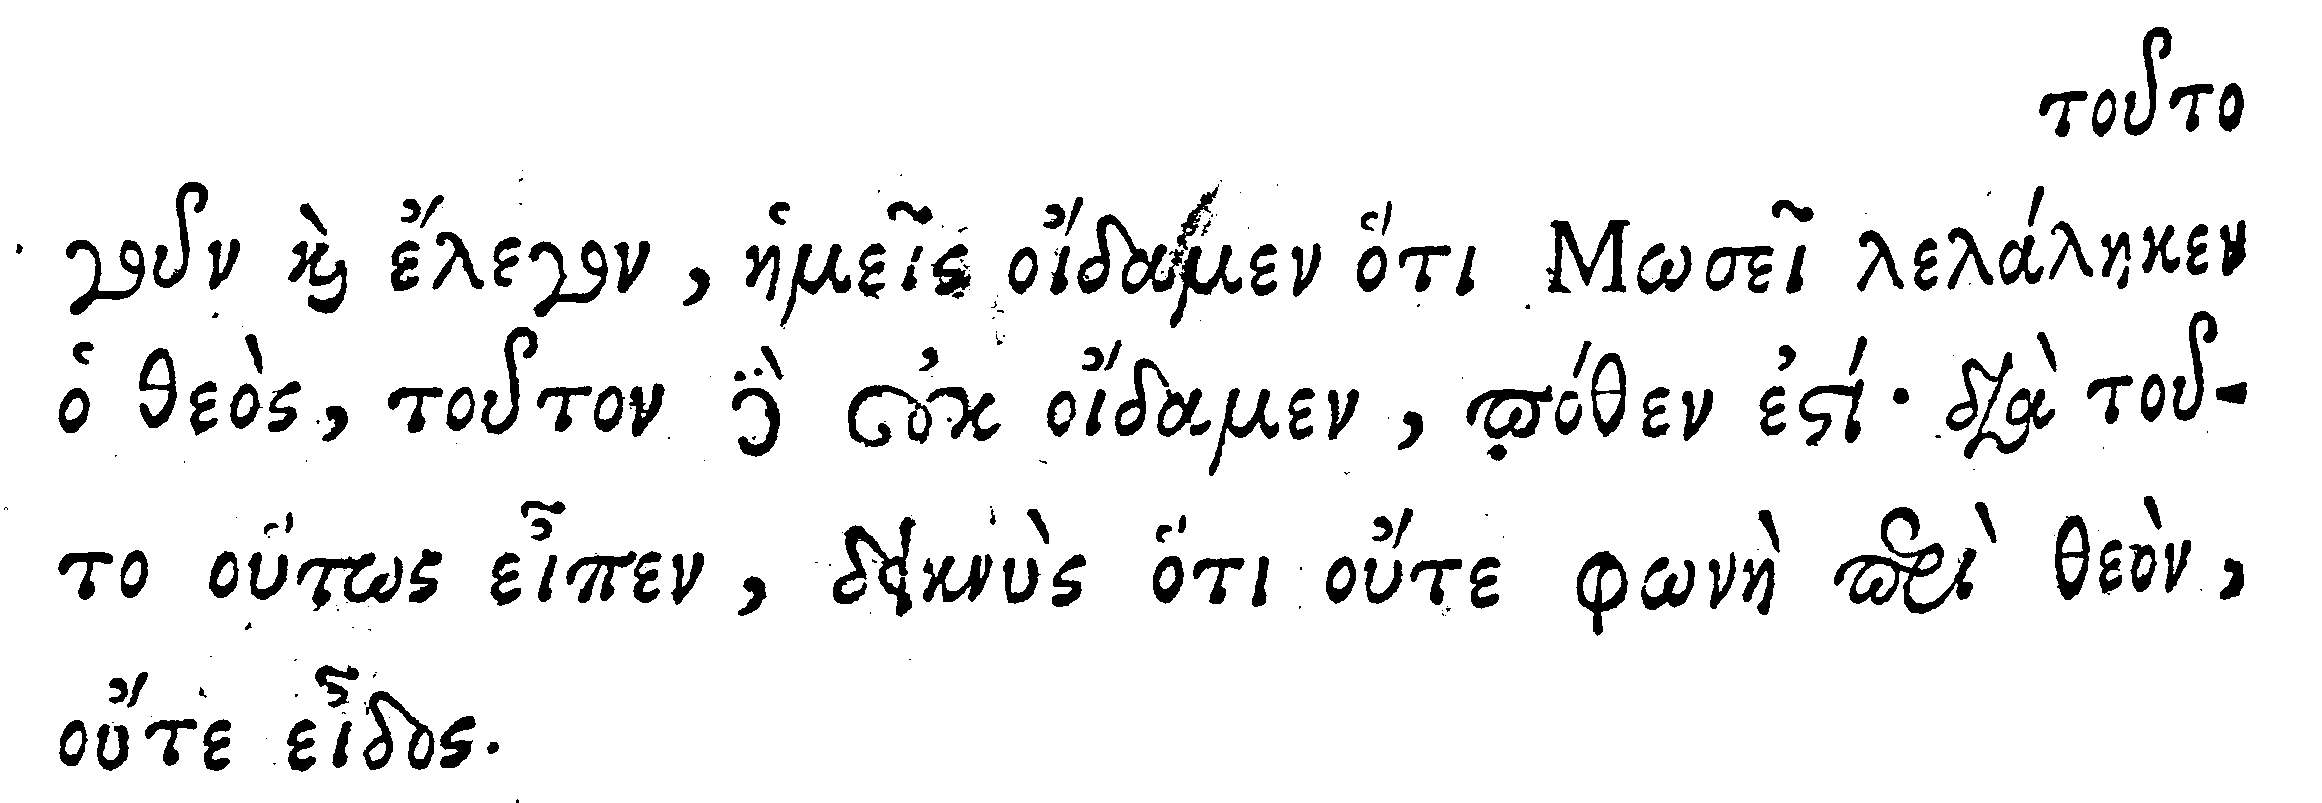 τοῦτο
γοῦν καὶ ἔλεγον, ἡμεῖς οἴδαμεν ὅτι Μωσεῖ λελάληκεν
ὁ θεὸς, τοῦτον δὲ οὐκ οἴδαμεν, πόθεν ἐστί· διὰ τοῦ-
το οὕτως εἶπεν, δεικνὺς ὅτι οὔτε φωνὴ περὶ θεὸν,
οὔτε εἶδος.